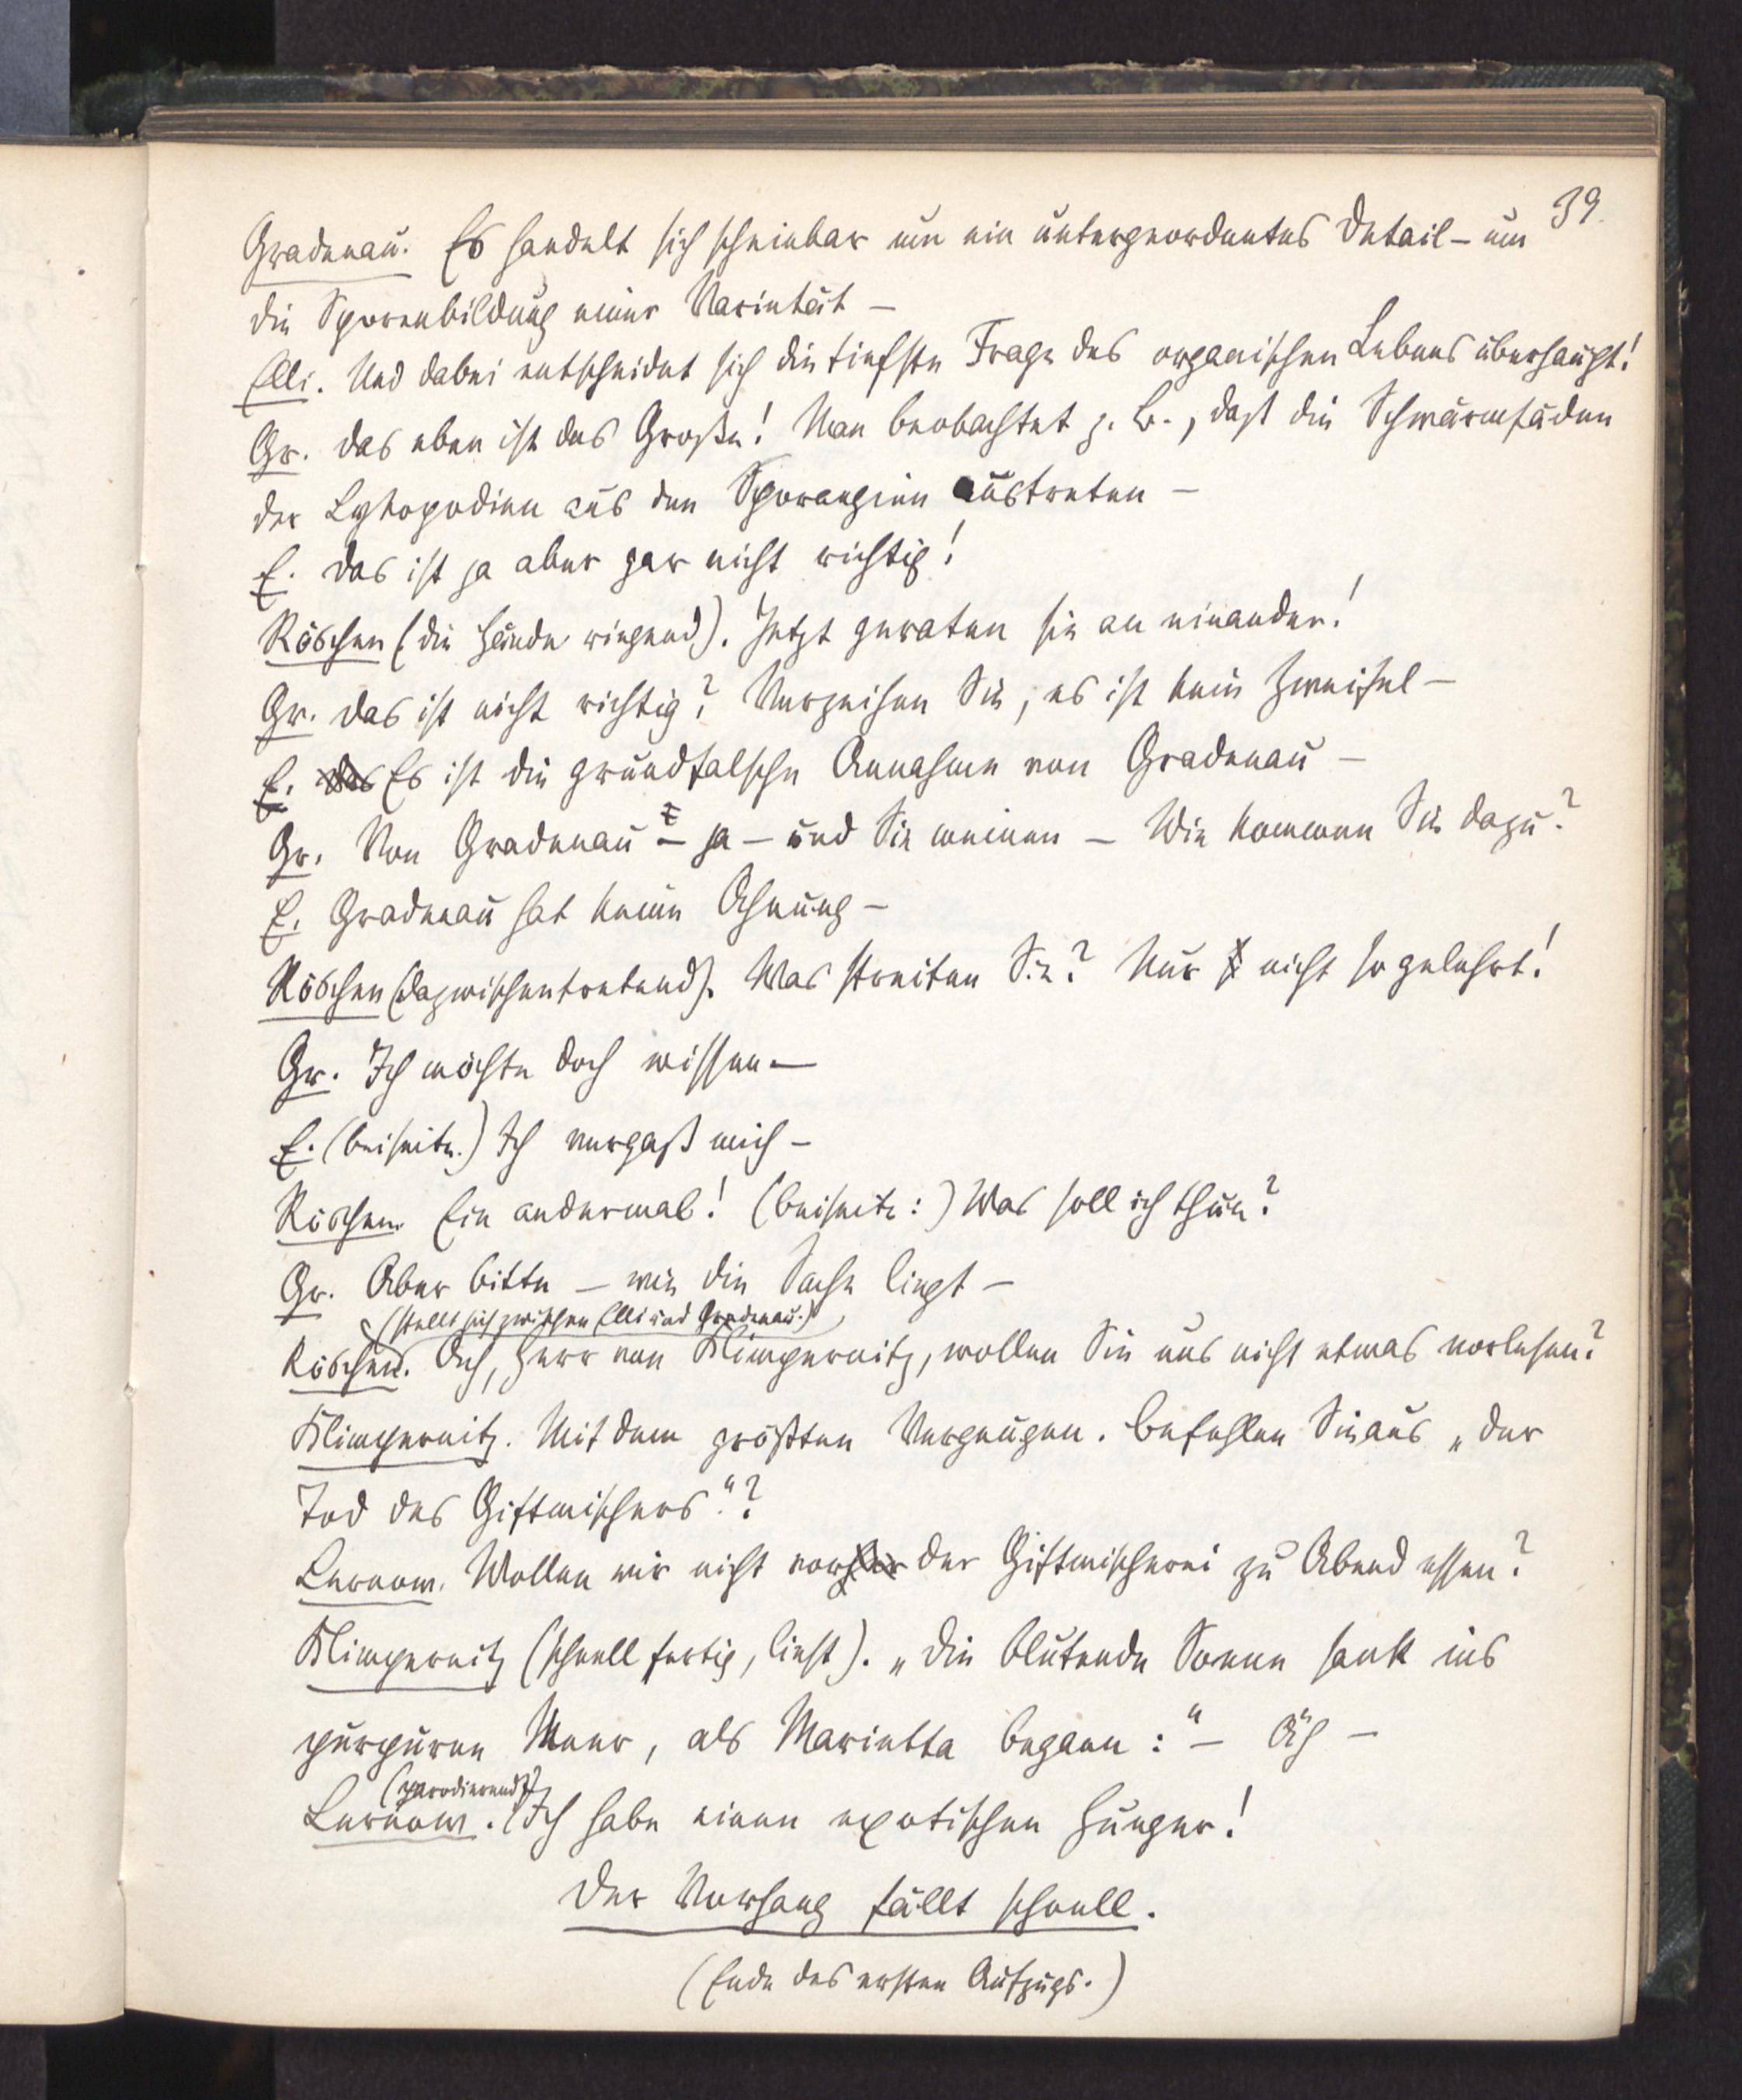 39.
Gradenau. Es handelt sich scheinbar um ein untergeordnetes Detail – um
die Sporenbildung einer Varietät –
Elli. Und dabei entscheidet sich die tiefste Frage des organischen Lebens überhaupt!
Gr. Das eben ist das Große! Man beobachtet z. B., daß die Schwärmfäden
der Lykopodien aus den Sporangien austreten –
E. Das ist ja aber gar nicht richtig!
Röschen (die Hände ringend). Jetzt geraten sie an einander!
Gr. Das ist nicht richtig? Verzeihen Sie, es ist kein Zweifel –
E. Das Es ist die grundfalsche Annahme von Gradenau –
Gr. Von Gradenau – ja – und Sie meinen – Wie kommen Sie dazu?
E. Gradenau hat keine Ahnung –
Röschen (dazwischentretend). Was streiten Sie? Nur nicht so gelehrt!
Gr. Ich möchte doch wissen –
E. (beiseite.) Ich vergaß mich –
Röschen. Ein andermal! (beiseite:) Was soll ich thun?
Gr. Aber bitte – wie die Sache liegt –
(stellt sich zwischen Elli und Gradenau.)
Röschen. Ach, Herr von Klimpernitz, wollen Sie uns nicht etwas vorlesen?
Klimpernitz. Mit dem größten Vergnügen. Befehlen Sie aus „Der
Tod des Giftmischers"?
Lernom. Wollen wir nicht vorher der Giftmischerei zu Abend essen?
Klimpernitz (schnell fertig, liest). „Die blutende Sonne sank ins
purpurne Meer, als Marietta begann:" – Ach –
(parodierend)
Lernom. Ich habe einen exotischen Hunger!
Der Vorhang fällt schnell.
(Ende des ersten Aufzugs.)